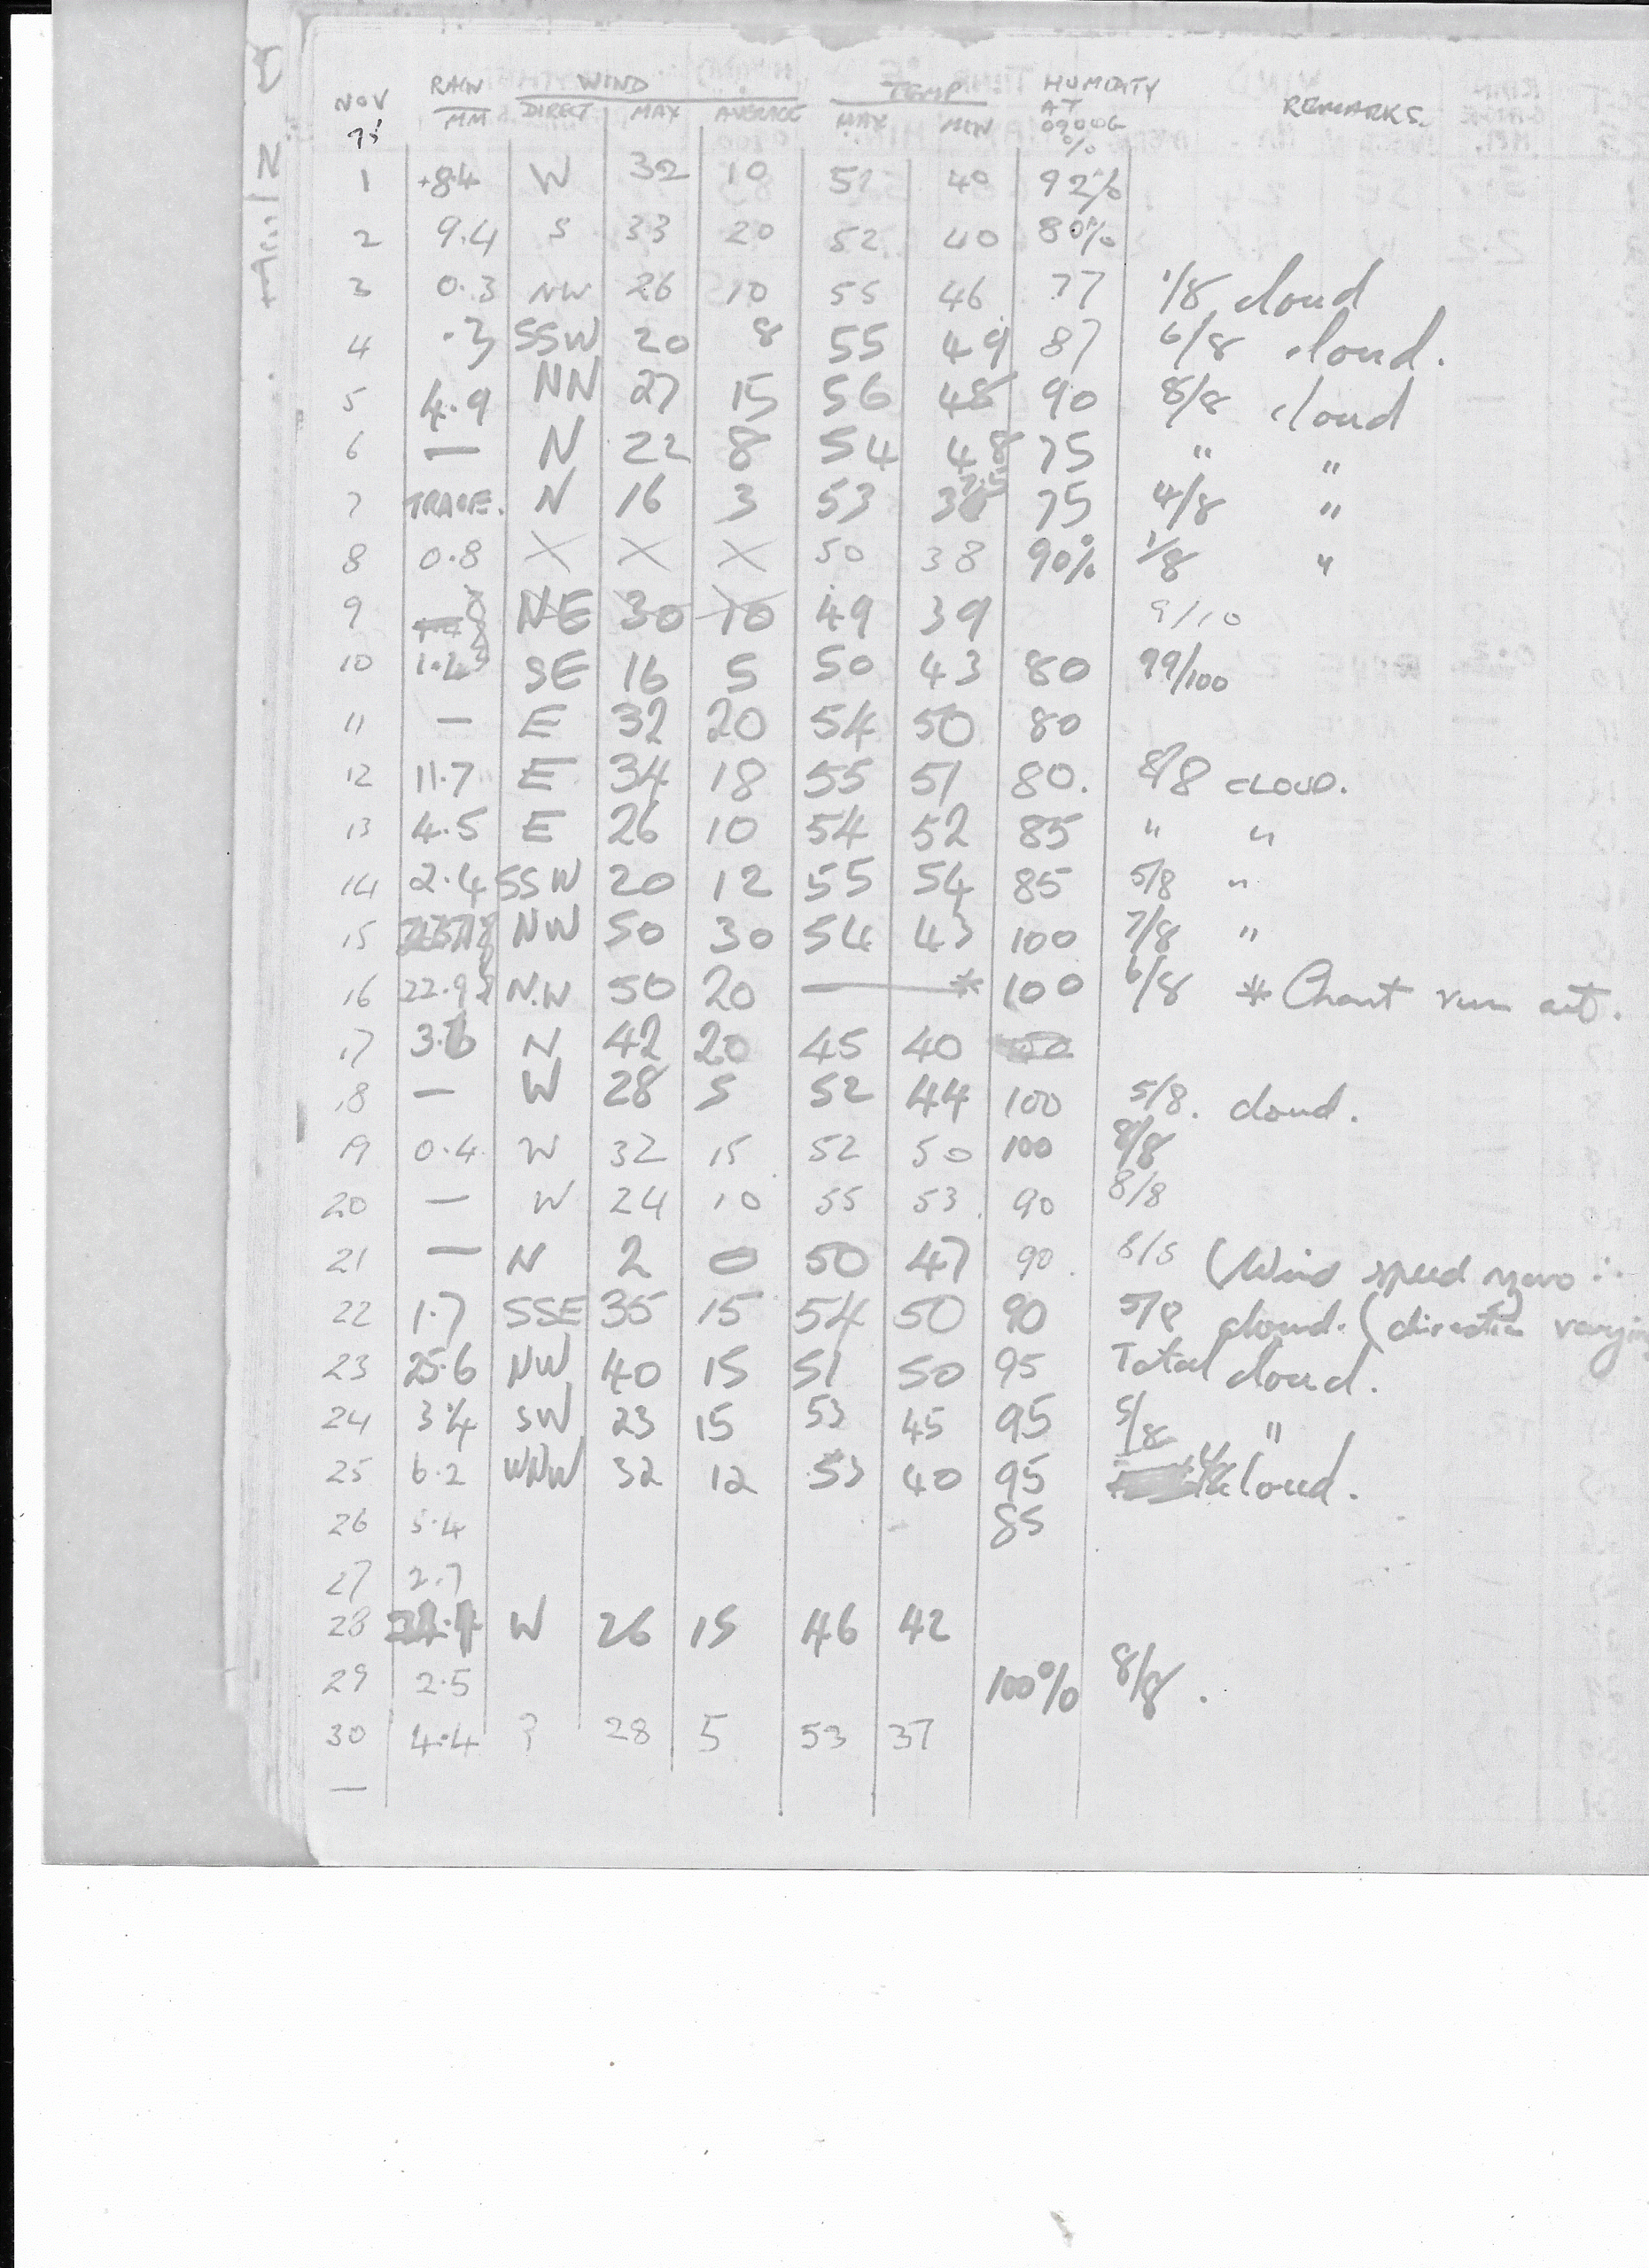 NOV RAIN WIND TEMP HUMIDITY REMARKS.
MM DIRECT MAX AVERAGE MAX MIN AT 0900G %
1 8.4 W 32 10 40 92%
2 9.4 S 33 20 52 40 80%
3 0.3 NW 26 10 55 46 77 1/8 cloud
4 .3 SSW 20 8 55 49 87 6/8 cloud.
5 4.9 NN 27 15 56 48 90 8/8 cloud
6 — N 22 8 54 48 75 " "
7 TRACE. N 16 3 53 75 4/8 "
8 0.8 X X X 50 38 90% 1/8 "
9 NE 30 10 49 39 9/10
10 SE 16 5 50 43 80 99/100
11 — E 32 20 54 50 80
12 11.7 E 34 18 55 51 80. 8/8 CLOUD.
13 4.5 E 26 10 54 52 85 " "
14 2.4 SSW 20 12 55 54 85 5/8 "
15 NW 50 30 54 43 100 7/8 "
16 22.9 N.W 50 20 — * 100 6/8 * Chart run out.
17 3.6 N 42 20 45 40
18 — W 28 5 52 44 100 5/8. cloud.
19 0.4 W 32 15 52 50 100 8/8
20 — W 24 10 55 53 90 8/8
21 — N 2 0 50 47 90. (Wind speed zero ∴
22 1.7 SSE 35 15 54 50 90 5/8 cloud. (direction
23 25.6 NW 40 15 51 50 95 Total cloud.
24 3.4 SW 23 15 53 45 95 5/8 "
25 6.2 WNW 32 12 53 40 95 cloud.
26 5.4 85
27 2.7
28 W 26 15 46 42
29 2.5 100% 8/8.
30 4.4 ? 28 5 53 37
—